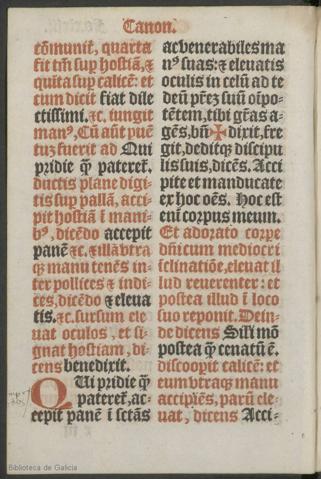 Canon.
cõmunit̃, quarta
fit tm̃ sup hostiã, ⁊
quĩta sup calicẽ: et
cum dicit fiat dile
ctissimi. ⁊c, iungit
manꝰ, Cũ aũt puẽ
tuz fuerit ad Qui
pridie q̃ paterет̃.
ductis plane digi-
tis sup pallã, acci-
pit hostiã ĩ mani-
bꝰ, dicẽdo accepit
panẽ ⁊c. ⁊ illã vtra
qꝫ manu tenẽs in-
ter pollices ⁊ indi-
ces, dicẽdo ⁊ eleua
tis. ⁊c. sursum ele
uat oculos, et si-
gnat hostiam, di-
cens benedixit.
QUi pridie q̃
pateret̃, ac-
cepit panẽ ĩ sctãs
ac venerabiles ma
nꝰ suas: ⁊ eleuatis
oculis in celũ ad te
deũ pr̃eʒ suũ oĩpo-
tẽtem, tibi gr̃as a-
gẽs, bñ ✠ dixit, fre
git, deditqꝫ discipu
lis suis, dicẽs. Acci
pite et manducate
ex hoc oẽs. Hoc est
enĩ corpus meum.
Et adorato corpe
dñi cum mediocri
ĩclinatiõe, eleuat il
lud reuerenter: et
postea illud ĩ loco
suo reponit. Dein-
de dicens Sili mõ
postea q̃ cenatũ ẽ.
discoopit calicẽ: et
eum vtraqꝫ manu
accipiẽs, parũ ele-
uat, dicens Acci-
Biblioteca de Galicia